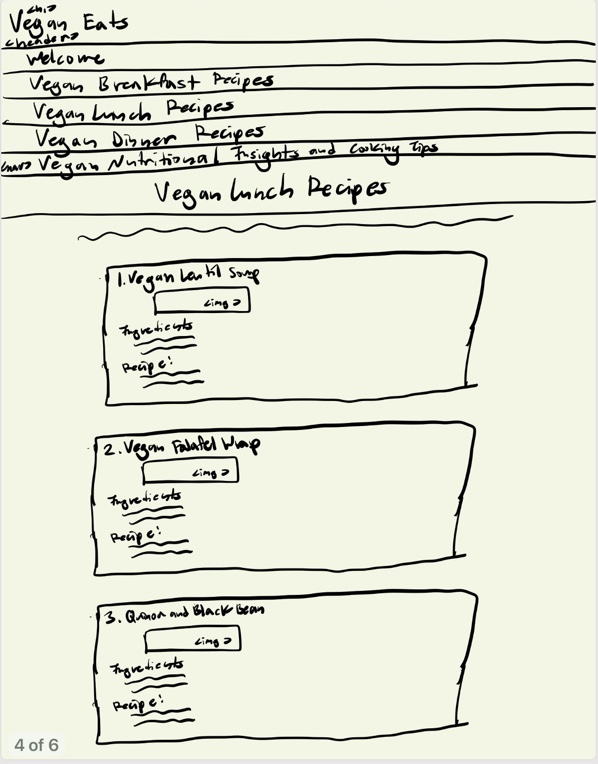 <h1>
Vegan Eats
<header>
Welcome
Vegan Breakfast Recipes
Vegan Lunch Recipes
Vegan Dinner Recipes
<nav> Vegan Nutritional Insights and Cooking Tips
Vegan Lunch Recipes
1. Vegan Lentil Soup
<img>
Ingredients
Recipe:
2. Vegan Falafel Wrap
<img>
Ingredients
Recipe:
3. Quinoa and Black Bean
<img>
Ingredients
Recipe:
4 of 6